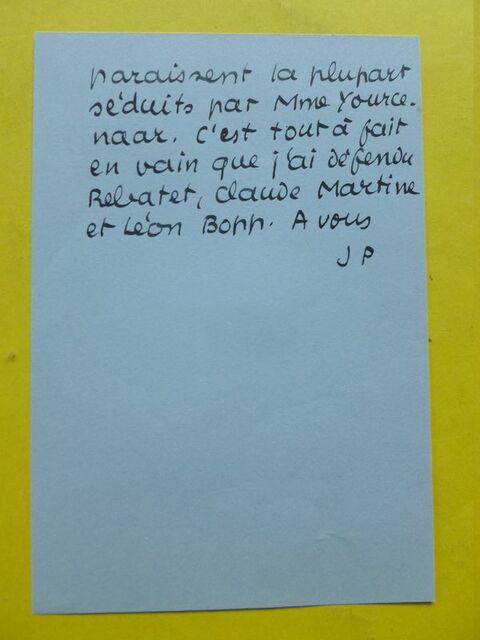 paraissent la plupart
séduits par Mme Yource-
naar. C'est tout à fait
en vain que j'ai défendu
Rebatet, Claude Martine
et Léon Bopp. A vous
J P